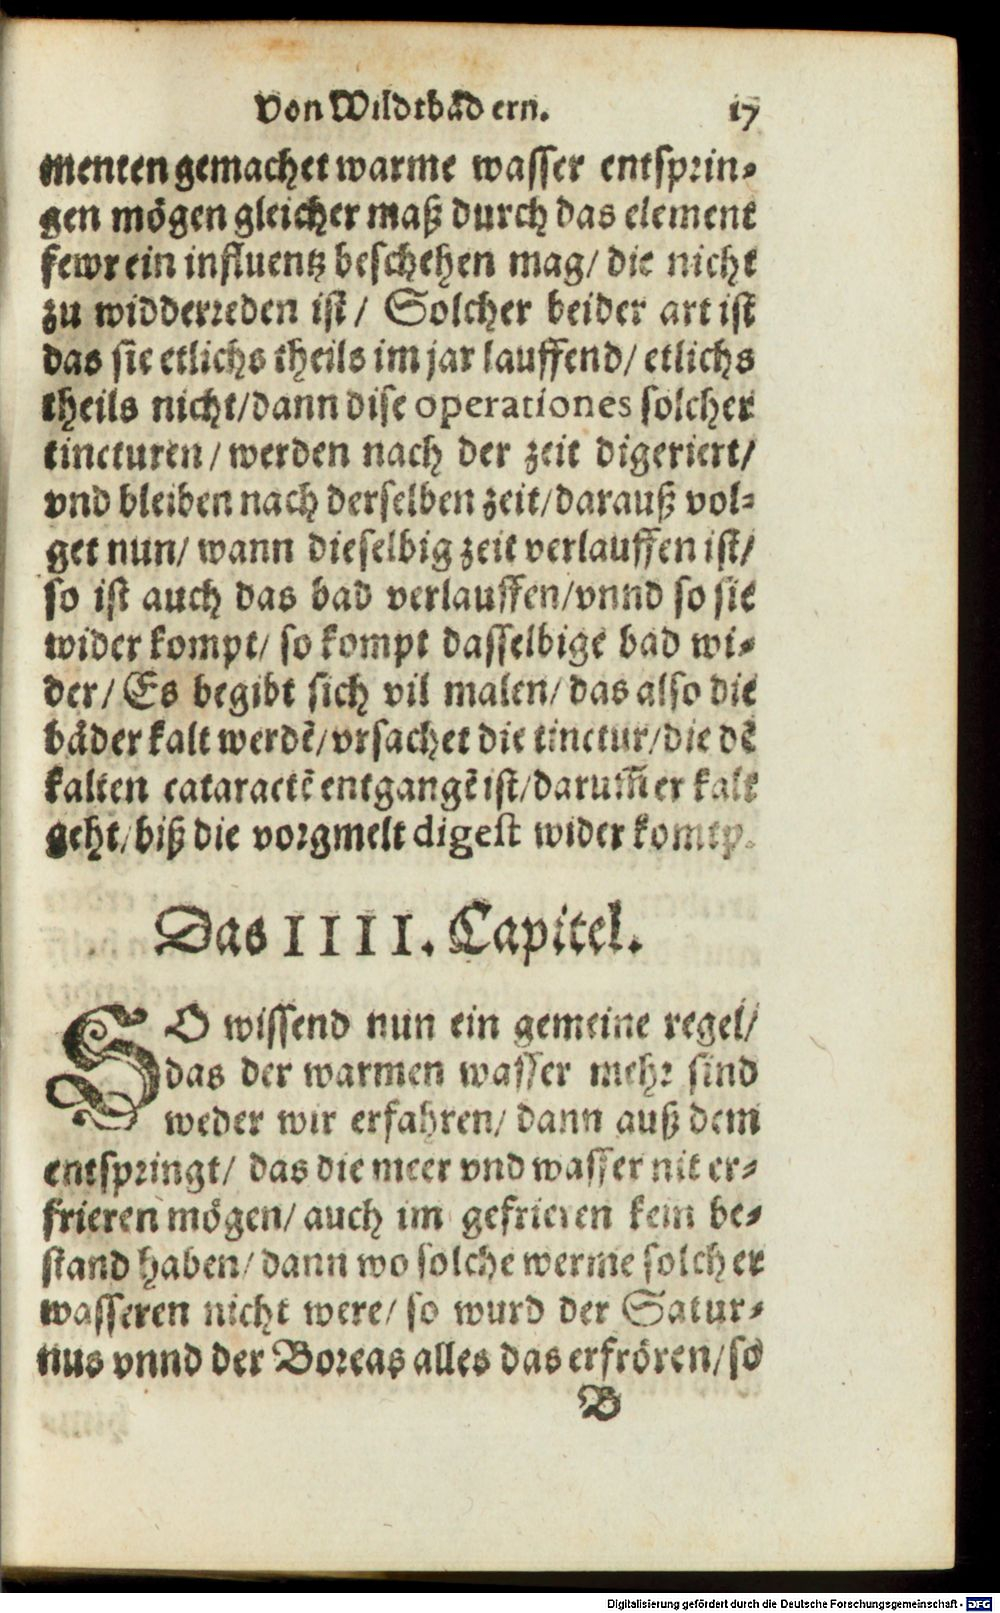 Von Wildtbåd ern. 17
menten gemachet warme wasser entsprin-
gen mögen gleicher maß durch das element
fewr ein influentz beschehen mag/ die nicht
zu widderreden ist/ Solcher beider art ist
das sie etlichs theils im jar lauffend/ etlichs
theils nicht/dann dise operationes solcher
tincturen/ werden nach der zeit digeriert/
vnd bleiben nach derselben zeit/darauß vol-
get nun/ wann dieselbig zeit verlauffen ist/
so ist auch das bad verlauffen/vnnd so sie
wider kompt/ so kompt dasselbige bad wi-
der/ Es begibt sich vil malen/ das also die
båder kalt werdē/vrsachet die tinctur/die dē
kalten cataractē entgangē ist/darum̄ er kalt
geht/biß die vorgmelt digest wider komtp.
Das IIII. Capitel.
SO wissend nun ein gemeine regel/
das der warmen wasser mehr sind
weder wir erfahren/ dann auß dem
entspringt/ das die meer vnd wasser nit er-
frieren mögen/ auch im gefrieren kein be-
stand haben/ dann wo solche werme solcher
wasseren nicht were/ so wurd der Satur-
nus vnnd der Boreas alles das erfrören/ so
B
Digitalisierung gefördert durch die Deutsche Forschungsgemeinschaft - DFG